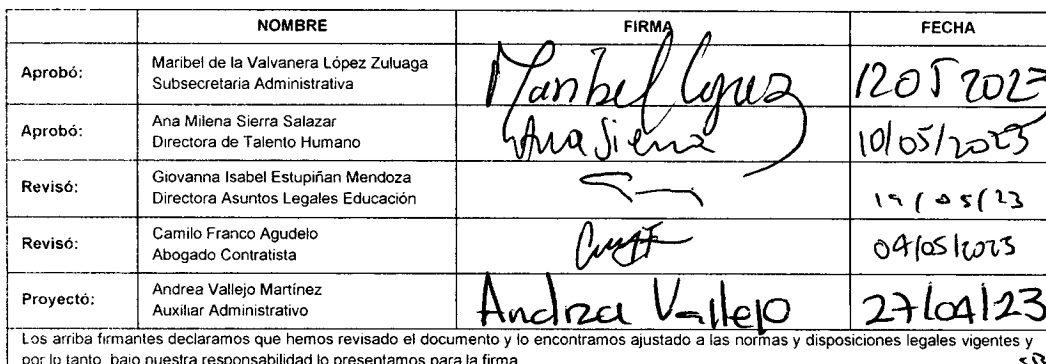 NOMBRE FIRMA FECHA
Aprobó: Maribel de la Valvanera López Zuluaga
Subsecretaria Administrativa
Maribel López 12 05 2023
Aprobó: Ana Milena Sierra Salazar
Directora de Talento Humano
Ana Sierra 10/05/2023
Revisó: Giovanna Isabel Estupiñan Mendoza
Directora Asuntos Legales Educación
Revisó: Camilo Franco Agudelo
Abogado Contratista
04/05/2023
Proyectó: Andrea Vallejo Martínez
Auxiliar Administrativo
Andrea Vallejo 27/04/23
Los arriba firmantes declaramos que hemos revisado el documento y lo encontramos ajustado a las normas y disposiciones legales vigentes y
por lo tanto, bajo nuestra responsabilidad lo presentamos para la firma.